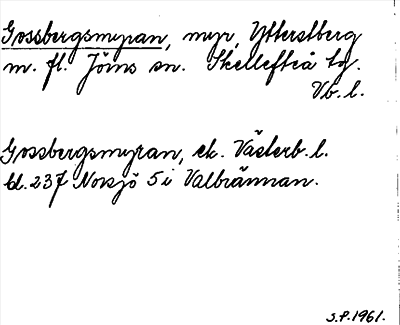 Gossbergsmyran, myr, Ytterstberg
m. fl. Jörns sn. Skellefteå tg.
Vb. l.
Gossbergsmyran, ek. Västerb. l.
bl. 237 Norsjö 5 i Valbrännan.
S.P. 1961.